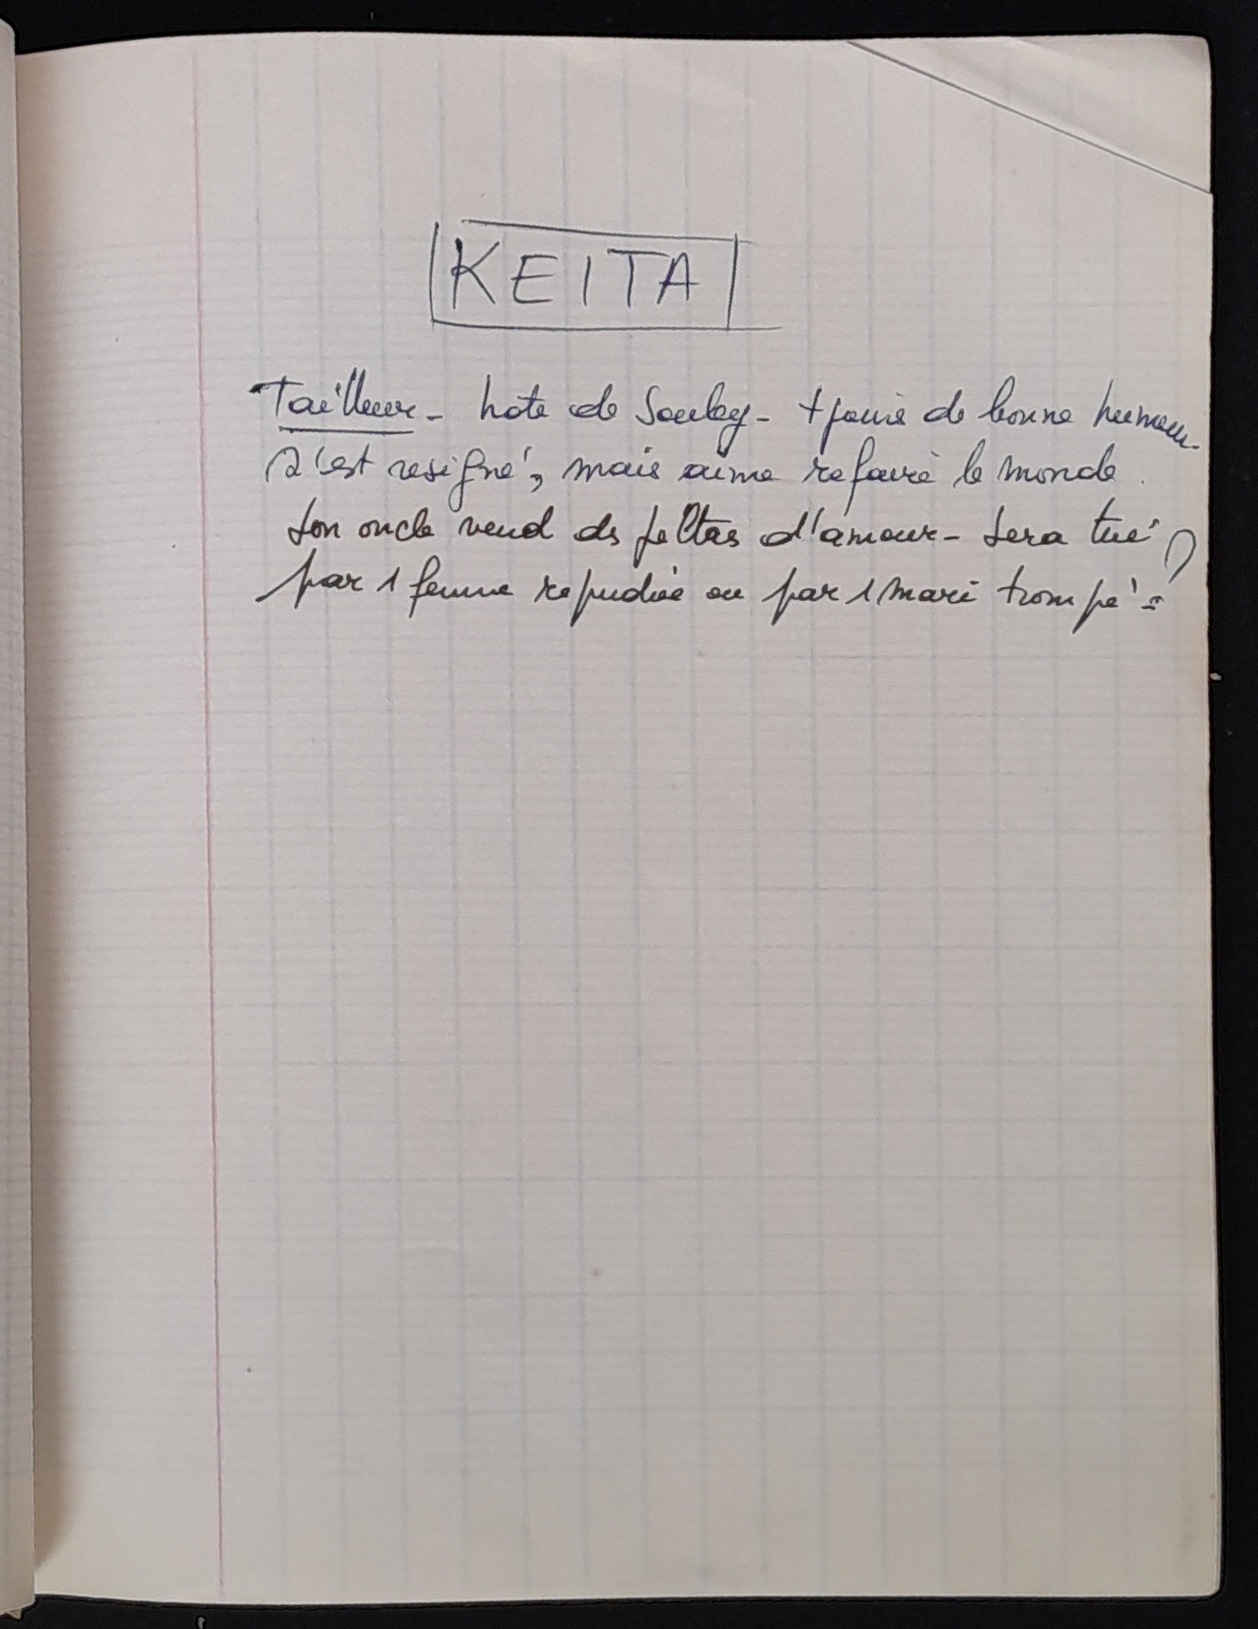 KEITA
Tailleur - hote de Souley - tjours de bonne humeur -
S'est resigné, mais aime refaire le monde.
Son oncle vend ds filtres d'amour - Sera tué
par 1 femme repudiée ou par 1 mari trompé ?